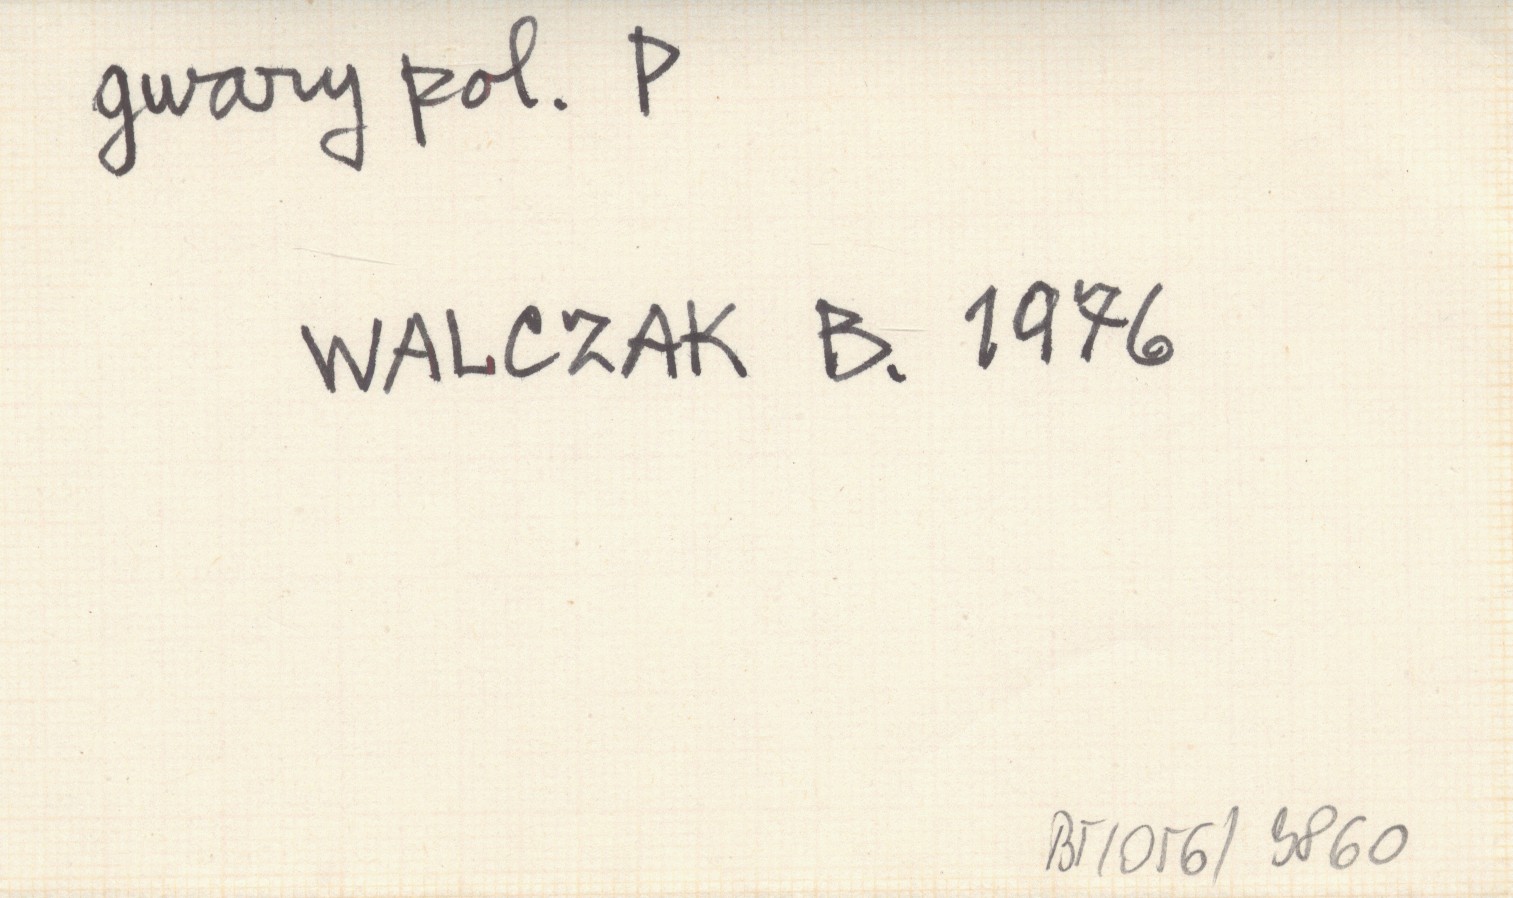 gwary pol. P
WALCZAK B. 1976
BT/056/ 3860